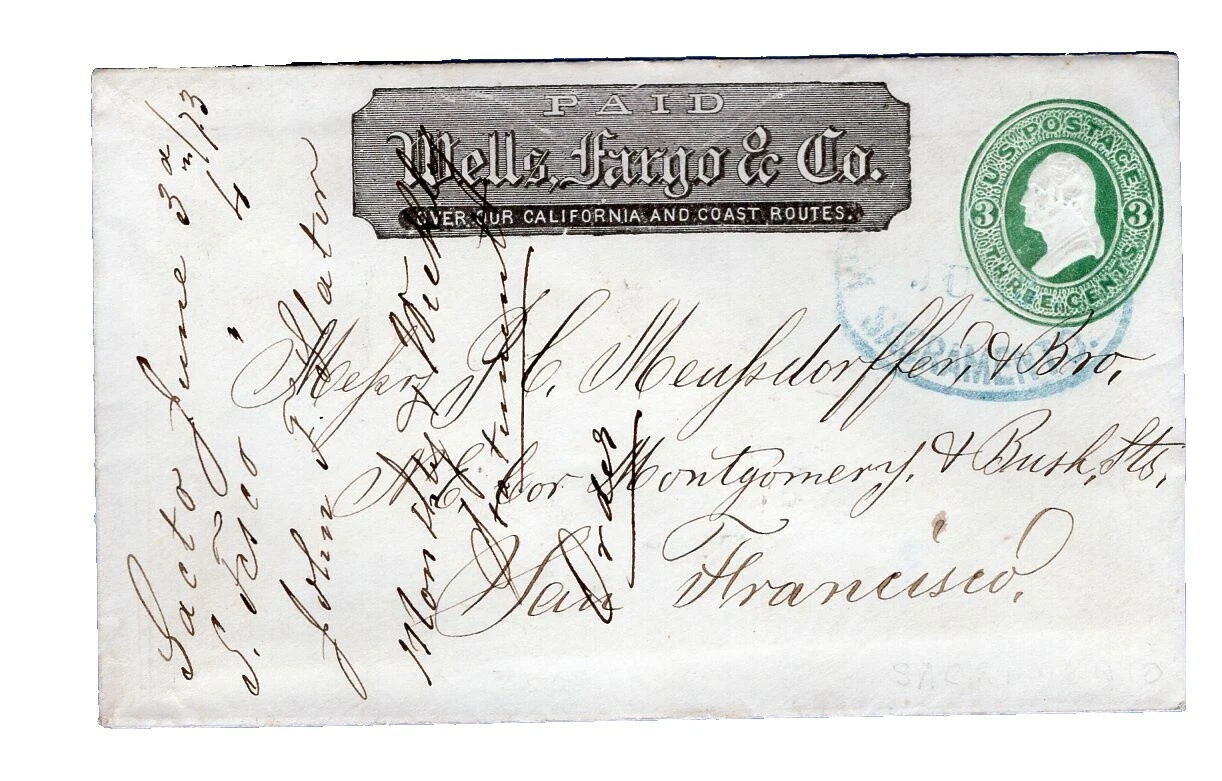 PAID
Wells, Fargo & Co.
OVER OUR CALIFORNIA AND COAST ROUTES.
U.S. POSTAGE
3 3
THREE CENTS
JU
SACRAMENTO.
Messrs J. C. Meussdorffer, & Bro,
N.E. Cor Montgomery. & Bush, Sts,
San Francisco.
Sacto June 3d
S. Fsco " 4 /73
John F.
Statement
Order